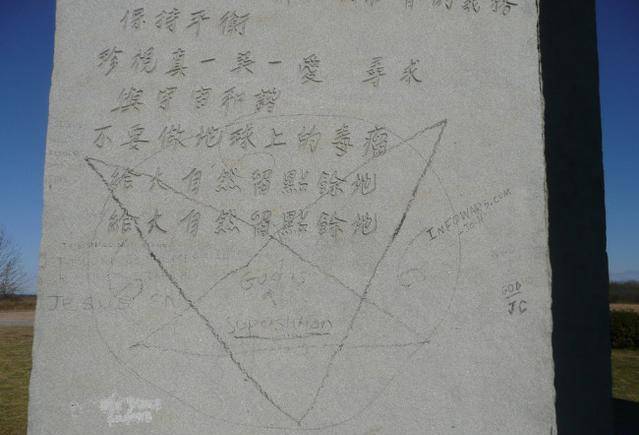 的義務
保持平衡
珍視真一美一愛 尋求
與宇宙和諧
不要做地球上的毒瘤
給大自然留點餘地
給大自然留點餘地
INFOWARS.COM
JESUS
superstition
GOD
JC